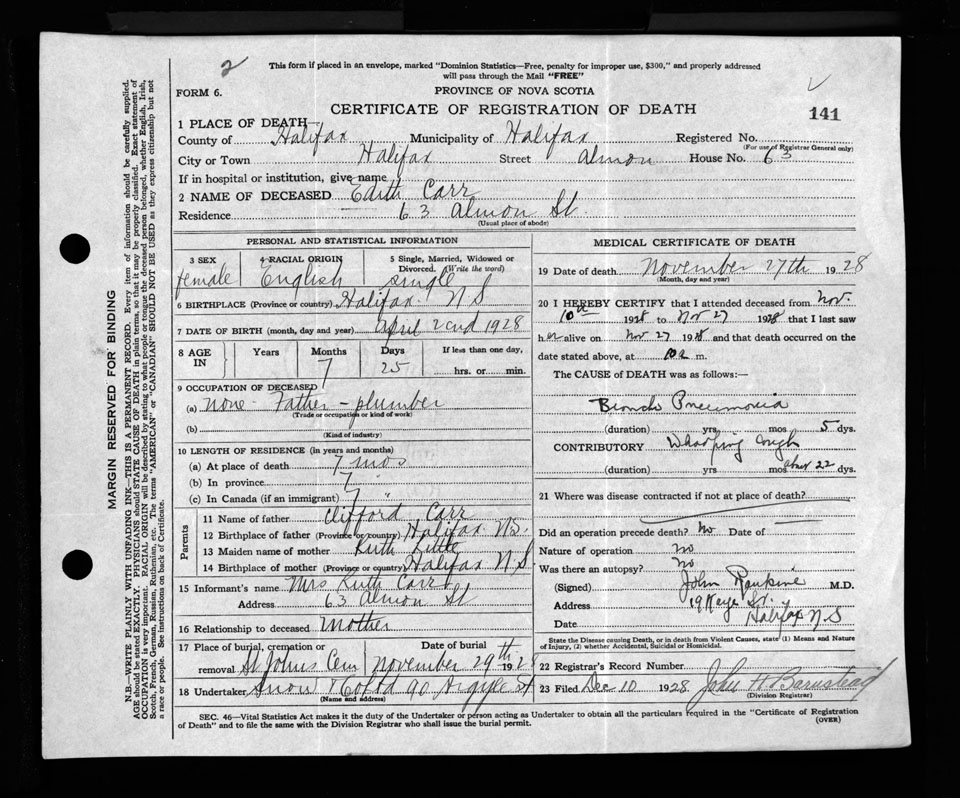 2
This form if placed in an envelope, marked "Dominion Statistics—Free, penalty for improper use, $300," and properly addressed
will pass through the Mail "FREE"
FORM 6.
PROVINCE OF NOVA SCOTIA
CERTIFICATE OF REGISTRATION OF DEATH
141
1 PLACE OF DEATH
County of Halifax Municipality of Halifax Registered No.
(For use of Registrar General only)
City or Town Halifax Street Almon House No. 63
If in hospital or institution, give name
2 NAME OF DECEASED Edith Carr
Residence 63 Almon St.
(Usual place of abode)
PERSONAL AND STATISTICAL INFORMATION
3 SEX 4 RACIAL ORIGIN 5 Single, Married, Widowed or
Divorced. (Write the word)
female English single
6 BIRTHPLACE (Province or country) Halifax N S
7 DATE OF BIRTH (month, day and year) April 2nd 1928
8 AGE IN Years Months Days If less than one day,
7 25 hrs. or min.
9 OCCUPATION OF DECEASED
(a) none Father - plumber
(Trade or occupation or kind of work)
(b)
(Kind of industry)
10 LENGTH OF RESIDENCE (in years and months)
(a) At place of death 7 mos
(b) In province 7
(c) In Canada (if an immigrant) 7 "
Parents
11 Name of father Clifford Carr
12 Birthplace of father (Province or country) Halifax N.S.
13 Maiden name of mother Ruth Little
14 Birthplace of mother (Province or country) Halifax N S
15 Informant's name Mrs Ruth Carr
Address 63 Almon St
16 Relationship to deceased Mother
17 Place of burial, cremation or
removal St Johns Cem November 29th 1928
18 Undertaker Snow & Co Ltd 90 Argyle St
(Name and address)
MEDICAL CERTIFICATE OF DEATH
19 Date of death November 27th 1928
(Month, day and year)
20 I HEREBY CERTIFY that I attended deceased from Nov.
10th 1928 to Nov 27 1928 that I last saw
her alive on Nov 27 1928 and that death occurred on the
date stated above, at 10 a m.
The CAUSE of DEATH was as follows:—
Broncho Pneumonia
(duration) yrs mos 5 dys.
CONTRIBUTORY Whooping Cough
(duration) yrs mos about 22 dys.
21 Where was disease contracted if not at place of death?
Did an operation precede death? No Date of
Nature of operation no
Was there an autopsy? no
(Signed) John Rankine M.D.
Address 19 Kaye St.
Halifax N.S
Date
State the Disease causing Death, or in death from Violent Causes, state (1) Means and Nature
of Injury, (2) whether Accidental, Suicidal or Homicidal.
22 Registrar's Record Number
23 Filed Dec 10 1928 John H Barnstead
(Division Registrar)
SEC. 46—Vital Statistics Act makes it the duty of the Undertaker or person acting as Undertaker to obtain all the particulars required in the "Certificate of Registration
of Death" and to file the same with the Division Registrar who shall issue the burial permit.
(OVER)
MARGIN RESERVED FOR BINDING
N.B.—WRITE PLAINLY WITH UNFADING INK—THIS IS A PERMANENT RECORD. Every item of information should be carefully supplied.
AGE should be stated EXACTLY. PHYSICIANS should STATE CAUSE OF DEATH in plain terms, so that it may be properly classified. Exact statement of
OCCUPATION is very important. RACIAL ORIGIN will be described by stating to what people or tongue the deceased person belonged, whether English, Irish,
Scotch, French, German, Russian, Ruthenian, etc. The terms "AMERICAN" or "CANADIAN" SHOULD NOT BE USED as they express citizenship but not
a race or people. See instructions on back of Certificate.